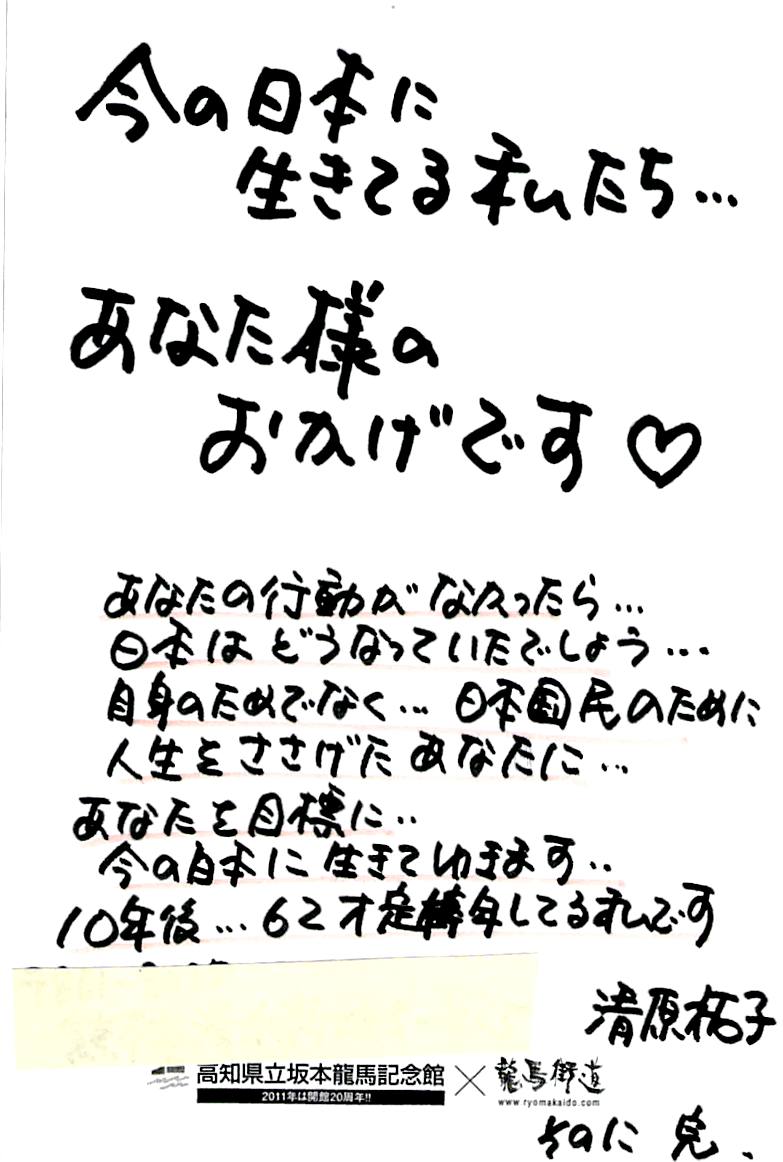 今の日本に
生きてる私たち…
あなた様の
おかげです♡
あなたの行動がなかったら…
日本はどうなっていたでしょう…
自身のためでなく…日本国民のために
人生をささげたあなたに…
あなたを目標に‥
今の日本に生きてゆきます‥
10年後…62才定年してる私です
清原祐子
高知県立坂本龍馬記念館×龍馬街道
2011年は開館20周年!!
www.ryomakaido.com